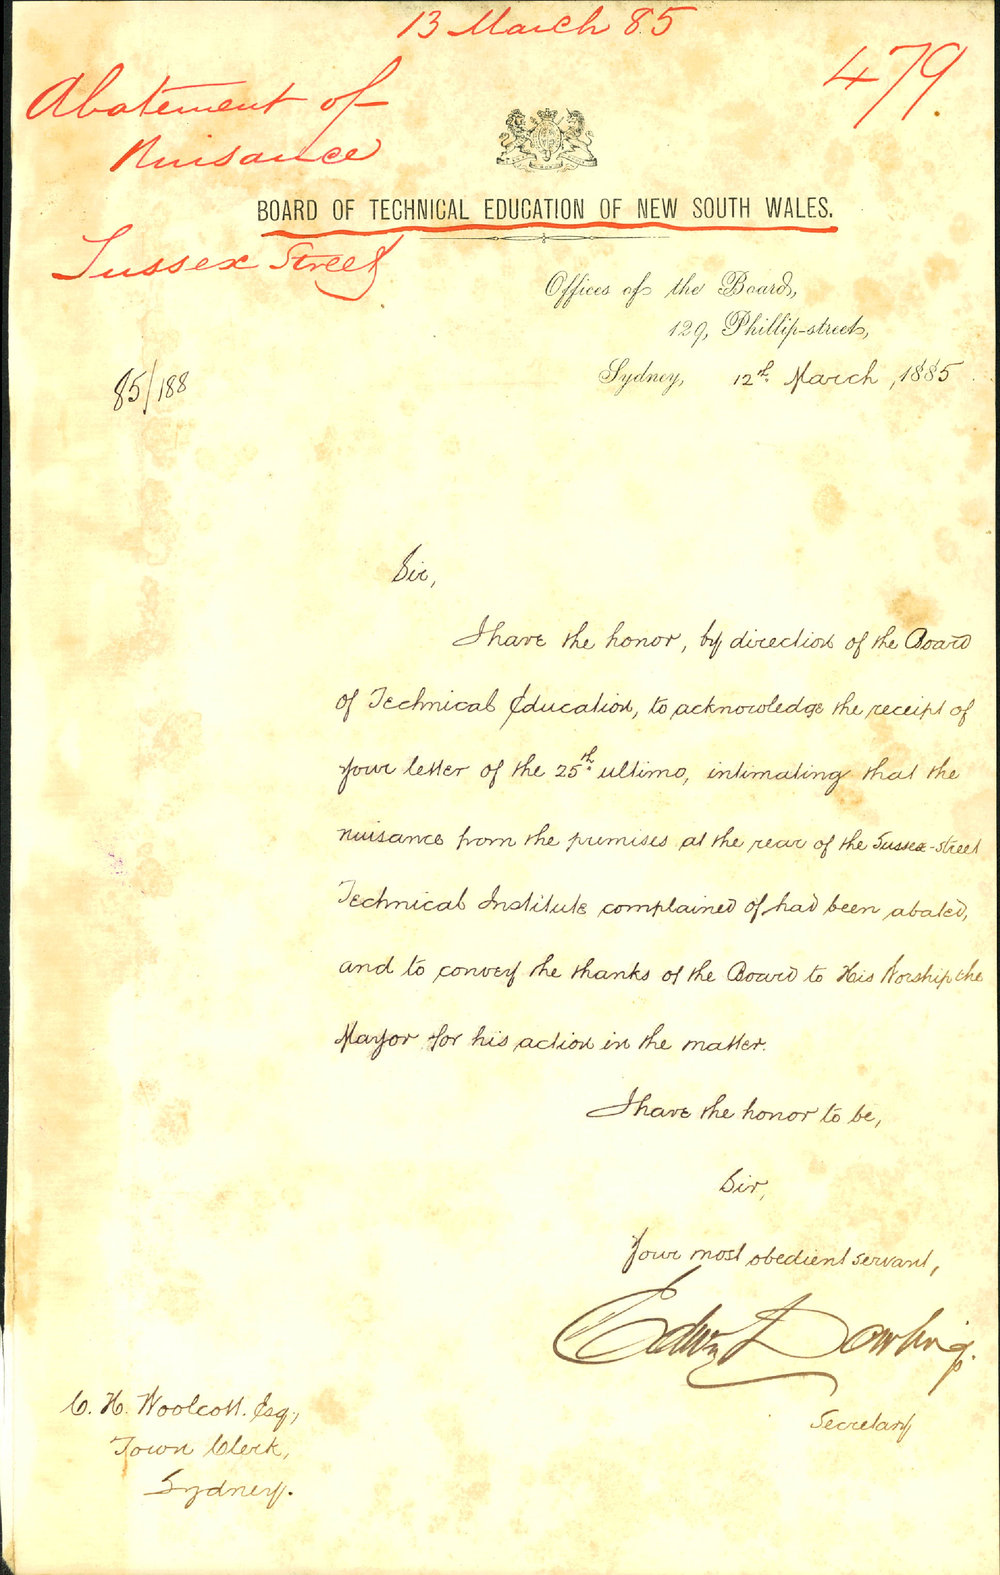 13 March 85
479.
Abatement of
Nuisance
Sussex Street
BOARD OF TECHNICAL EDUCATION OF NEW SOUTH WALES.
Offices of the Board,
129, Phillip-street,
Sydney, 12th March, 1885
85/188
Sir,
I have the honor, by direction of the Board
of Technical Education, to acknowledge the receipt of
your letter of the 25th ultimo, intimating that the
nuisance from the premises at the rear of the Sussex-street
Technical Institute complained of had been abated,
and to convey the thanks of the Board to His Worship the
Mayor for his action in the matter.
I have the honor to be,
Sir,
Your most obedient servant,
Edwd Dowling.
Secretary
C. H. Woolcott. Esq.,
Town Clerk,
Sydney.